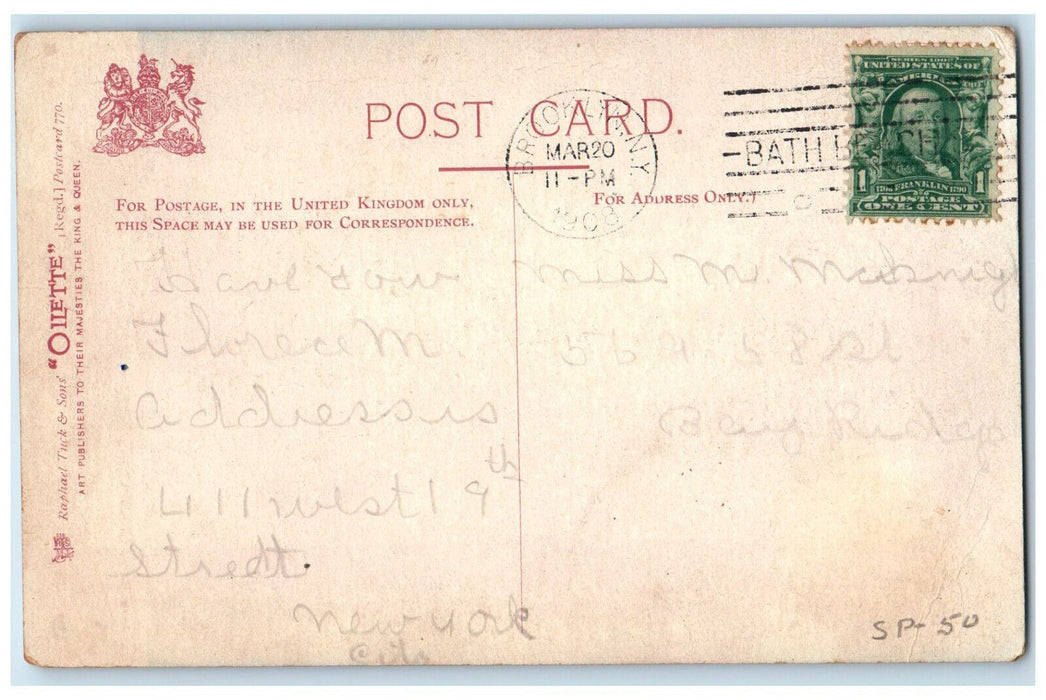 POST CARD.
FOR POSTAGE, IN THE UNITED KINGDOM ONLY,
THIS SPACE MAY BE USED FOR CORRESPONDENCE.
FOR ADDRESS ONLY.
Raphael Tuck & Sons' "OILETTE" [Regd.] Postcard 770.
ART PUBLISHERS TO THEIR MAJESTIES THE KING & QUEEN.
BROOKLYN, N.Y.
MAR 20
11-PM
1908
BATH BEACH
SERIES 1902
UNITED STATES OF
AMERICA
1706 FRANKLIN 1790
1 1
POSTAGE
ONE CENT
Florece M.
address is
411 west 19th
Street.
New York
City
Miss M.
68 St
Bay Ridge
SP-50